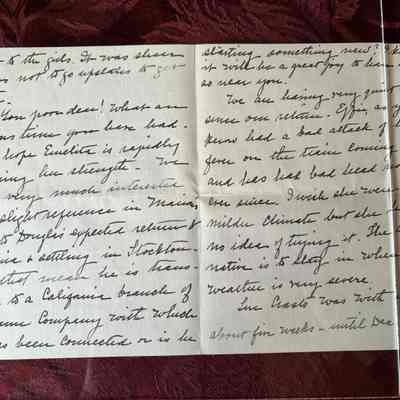 - to the girls. It was sheer
not to go upstairs to get
You poor dear! What an
time you have had.
hope Emelita is rapidly
ing her strength. We
very much interested
slight reference in
to Douglis' expected return &
& settling in Stockton.
that mean he is trans-
to a California branch of
Company with which
as been connected or is he
starting something new?
it will be a great joy to have
so near you.
We are having very quiet
since our return. Effie, as y
know had a bad attack of
fever on the train coming
and has had bad head
ever since. I wish she were
milder climate but she
no idea of trying it. The
native is to stay in when
weather is very severe
was with
about five weeks - until Dec